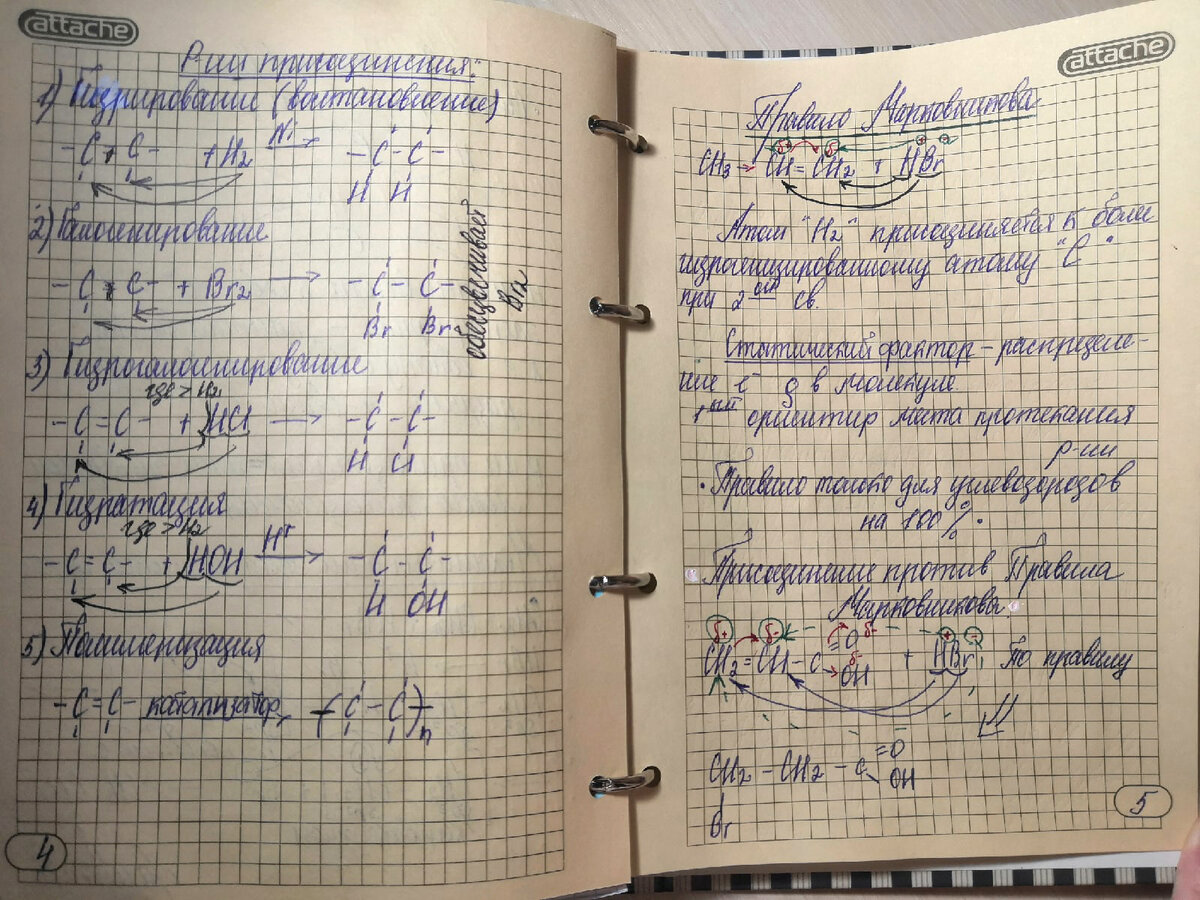 attache
Р-ии присоединения:
1) Гидрирование (восстановление)
-C=C- + H2 Ni → -C-C-
H H
2) Галогенирование
-C=C- + Br2 → -C-C-
Br Br
обесцвечивает Br2
3) Гидрогалогенирование
где > H2
-C=C- + HCl → -C-C-
H Cl
4) Гидратация
где > H2
-C=C- + HOH H+ → -C-C-
H OH
5) Полимеризация
-C=C- катализатор → (-C-C-)n
4
attache
Правило Марковникова
δ+ δ- + -
CH3 → CH = CH2 + HBr
Атом "H2" присоединяется к более
гидрогенизированному атому "C"
при 2ой св.
Статический фактор – распределе-
ние e- q в молекуле
1ый ориентир места протекания
р-ии
• Правило только для углеводородов
на 100%.
• Присоединение против Правила
Марковникова:
δ+ δ- =O δ- + -
CH2 = CH - C OH δ- + HBr, по правилу
CH2 - CH2 - C =O OH
Br
5